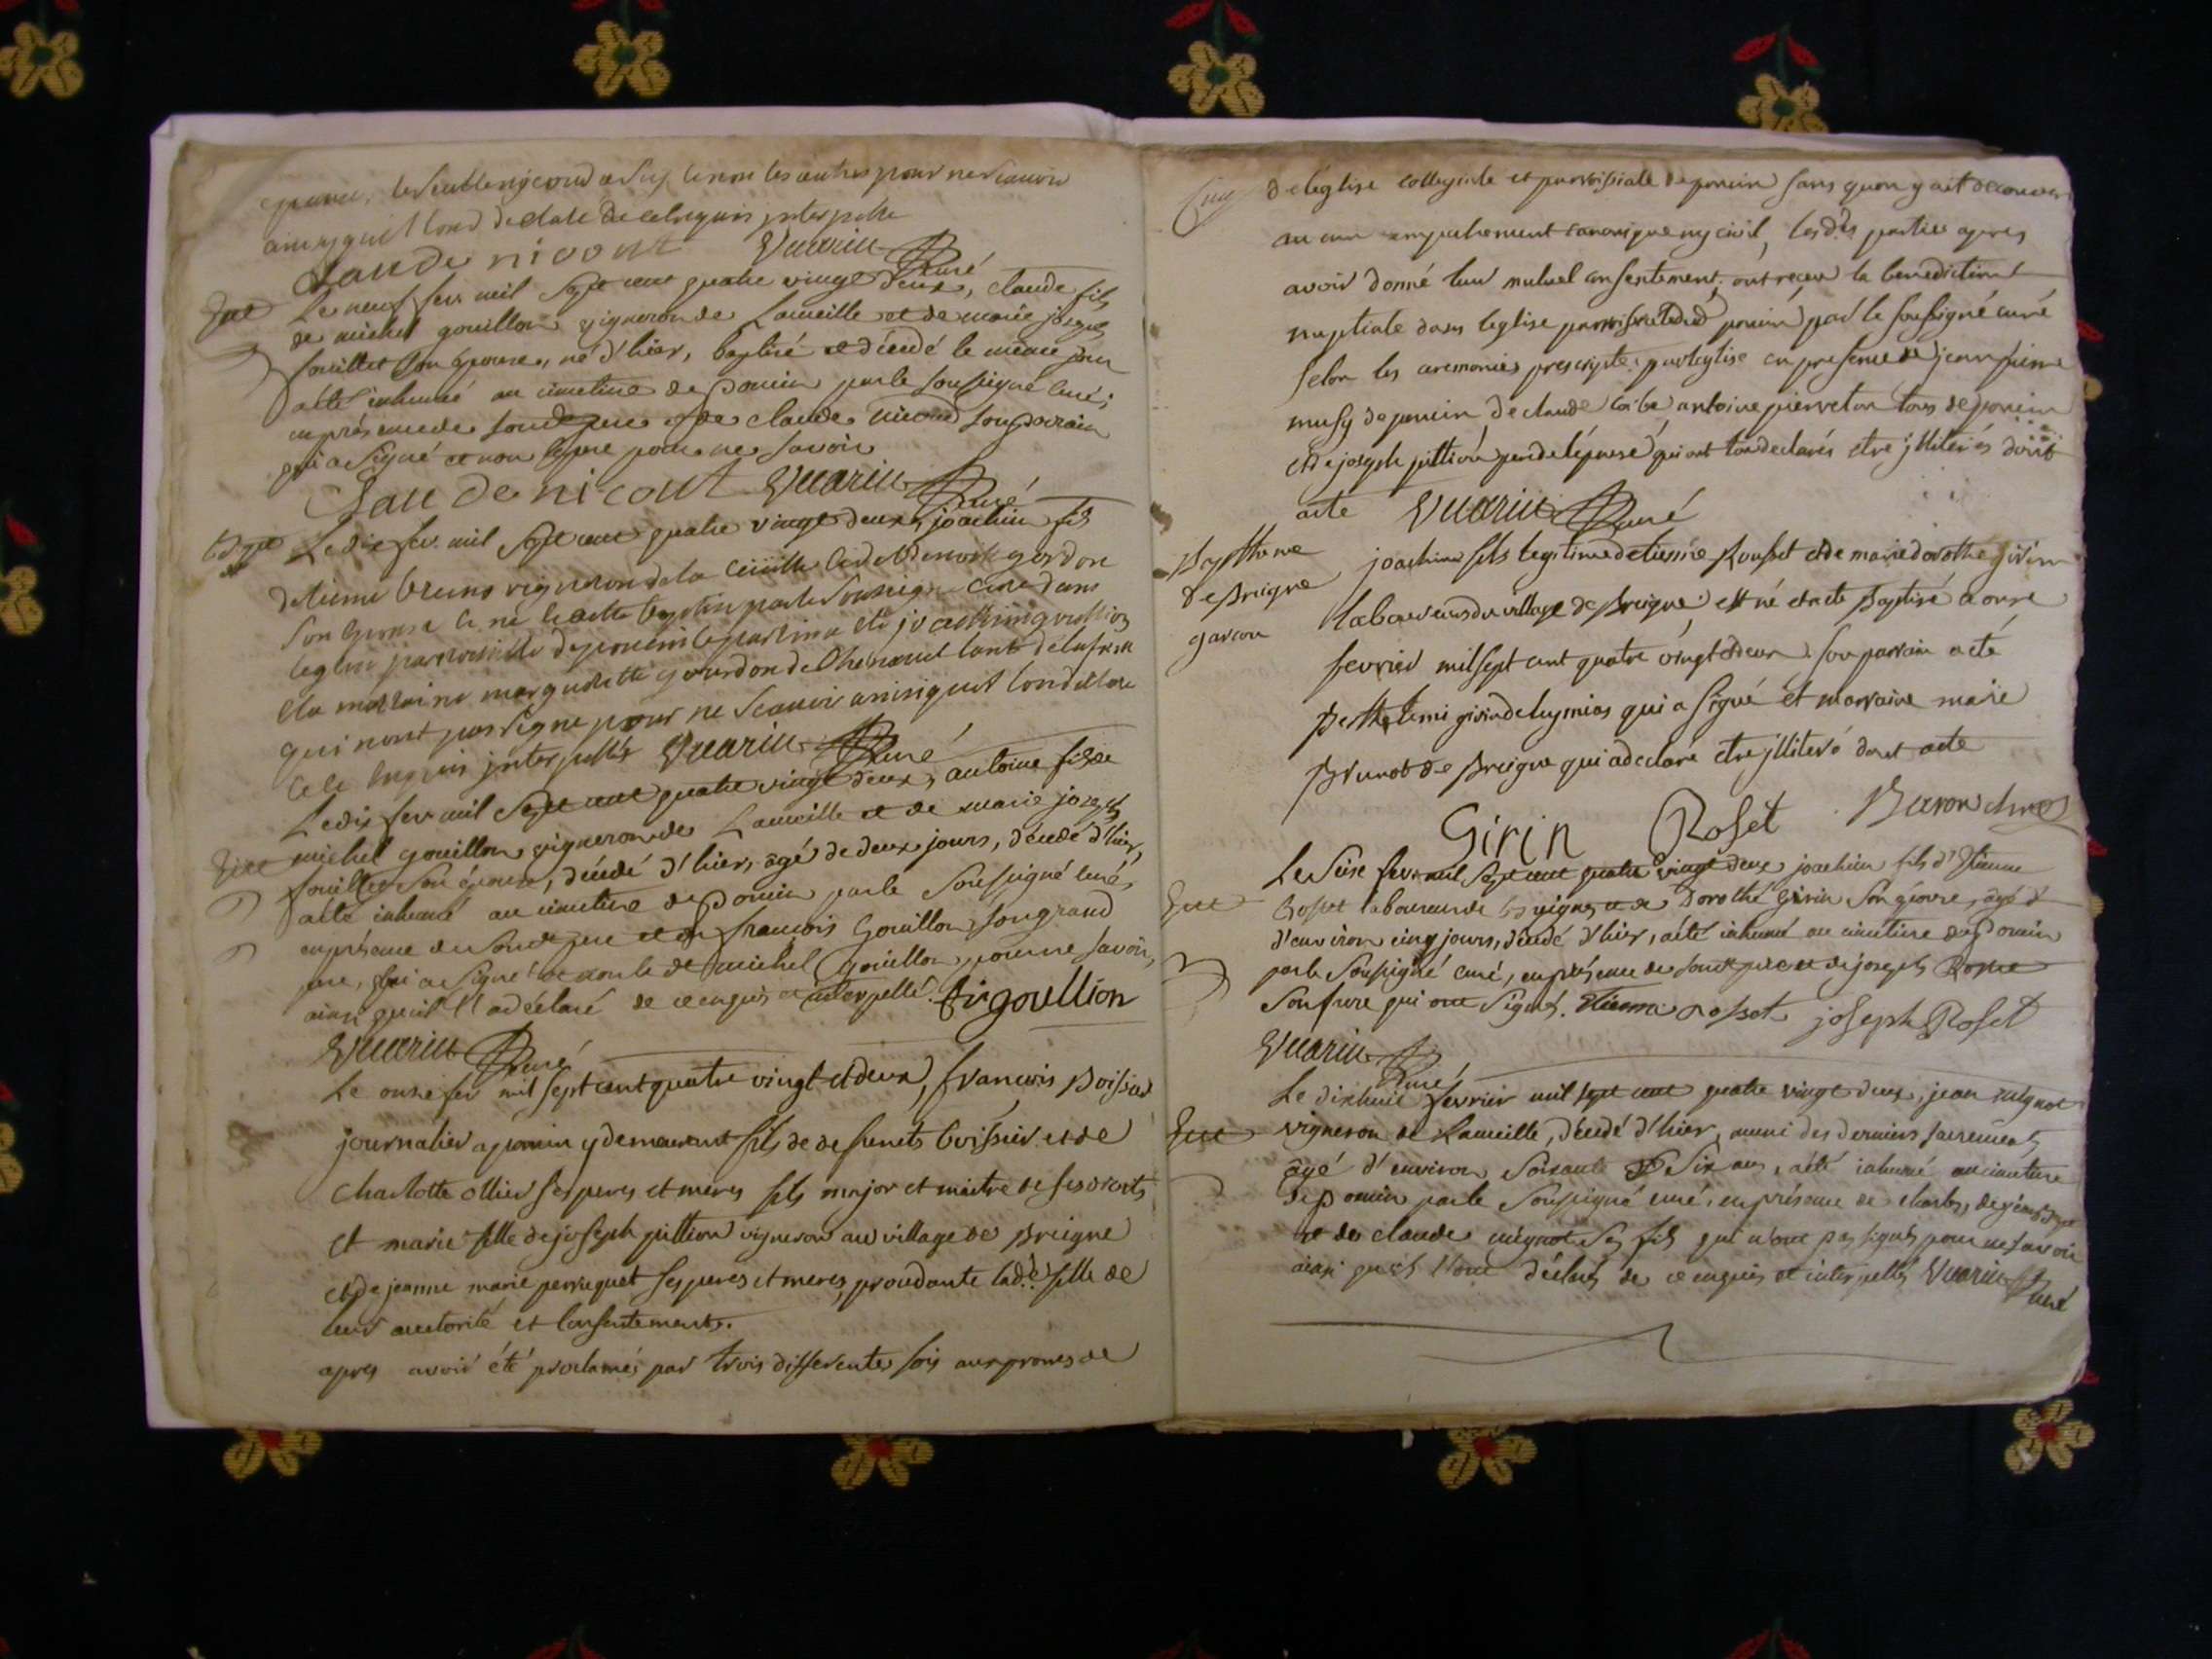 ainsy quil lond declaré de ce enquis interpellé
Claude nicout Vuarin Curé
Le neuf fev. mil Sept cent quatre vingt deux, Claude fils
de michel gouillon vigneron de Lameille et de marie josephe
fouillet Son épouse, né d'hier, baptisé et décédé le même jour
a été inhumé au cimetiere de Poncin par le Soussigné Curé,
en présence de Sond. pere et de claude nicoud Son parrain
qui a Signé et non le pere pour ne Savoir
Claude nicout Vuarin Curé
Le dix fev. mil Sept cent quatre vingt deux, joachin fils
detienne vigneron de la
Son epouse né baptisé par le Soussigné Curé dans
leglise parroissialle de poncin le parrain été joachim
et la marraine margueritte gourdon de
qui n'ont pas Signé pour ne Scavoir ainsi quil lond declaré
de ce enquis interpellés Vuarin Curé
Le dix fev. mil Sept cent quatre vingt deux, antoine fils de
michel gouillon, vigneron de Lameille et de marie joseph
fouillet Son épouse, décédé d'hier, âgé de deux jours,
a été inhumé au cimetiere de Poncin par le Soussigné curé,
en présence de Sond. pere et de françois Gouillon, Son grand
pere, qui a Signé et non led. michel Gouillon pour ne Savoir,
ainsi qu'il l'a déclaré de ce enquis et interpellé. goullion
Vuarin Curé
Le onse fev mil sept cent quatre vingt et deux, francois Boissier
journalier a poncin y demeurant fils de defunts boissier et de
Charlotte ollier ses peres et meres fils major et maitre de ses droits
et marie fille de joseph jullion vigneron au village de Breigne
et de jeanne marie perruquet ses peres et meres, procedante lad.te fille de
leur auctorité et Consentement.
apres avoir été proclamés par trois differentes fois aux prones de
de léglise collegiale et parroissiale de poncin sans quon y ait decouvert
aucun empechement canonique ny civil, lesd.tes parties apres
avoir donné leur mutuel consentement, ont receu la benediction
nuptiale dans leglise parroissiale dud poncin par le soussigné curé
selon les ceremonies prescriptes par leglise en presence de jean pierre
musy de poncin, de claude antoine pierreton tous de poncin
et de joseph jullion pere de l'épouse qui ont tous declarés etre jllitérés dont
acte Vuarin Curé
Baptheme
de Breigne
garcon
joachim fils legitime detienne Rousset et de marie dorothé girin
laboureurs du village de Breigne, est né et acté Baptisé a onse
fevrier mil sept cent quatre vingt et deux. son parrain acté
Berthelemi girin de lugmias qui a signé et marraine marie
Brunot de Breigne qui a declaré etre jllitéré dont acte
Girin Roset
Le Seise fev. mil Sept cent quatre vingt deux joachim fils d'Etienne
Rosset laboureur de Breigne, et de Dorothé Girin Son épouse, âgé d
d'environ cinq jours, décédé d'hier, a été inhumé au cimetiere de Poncin
par le Soussigné curé, en présence de Sond. pere et de joseph Rosset
Son frere qui ont Signés. Etienne rosset joseph Roset
Vuarin Curé
Le dixhuit fevrier mil sept cent quatre vingt deux, jean mignot
vigneron de Lameille, décédé d'hier, muni des derniers sacrements,
âgé d'environ Soixante et Six ans, a été inhumé au cimetiere
de Poncin par le Soussigné curé, en présence de charles, de
et de claude mignot Ses fils qui n'ont pas signés pour ne savoir
ainsi qu'ils l'ont déclarés de ce enquis et interpellés Vuarin Curé